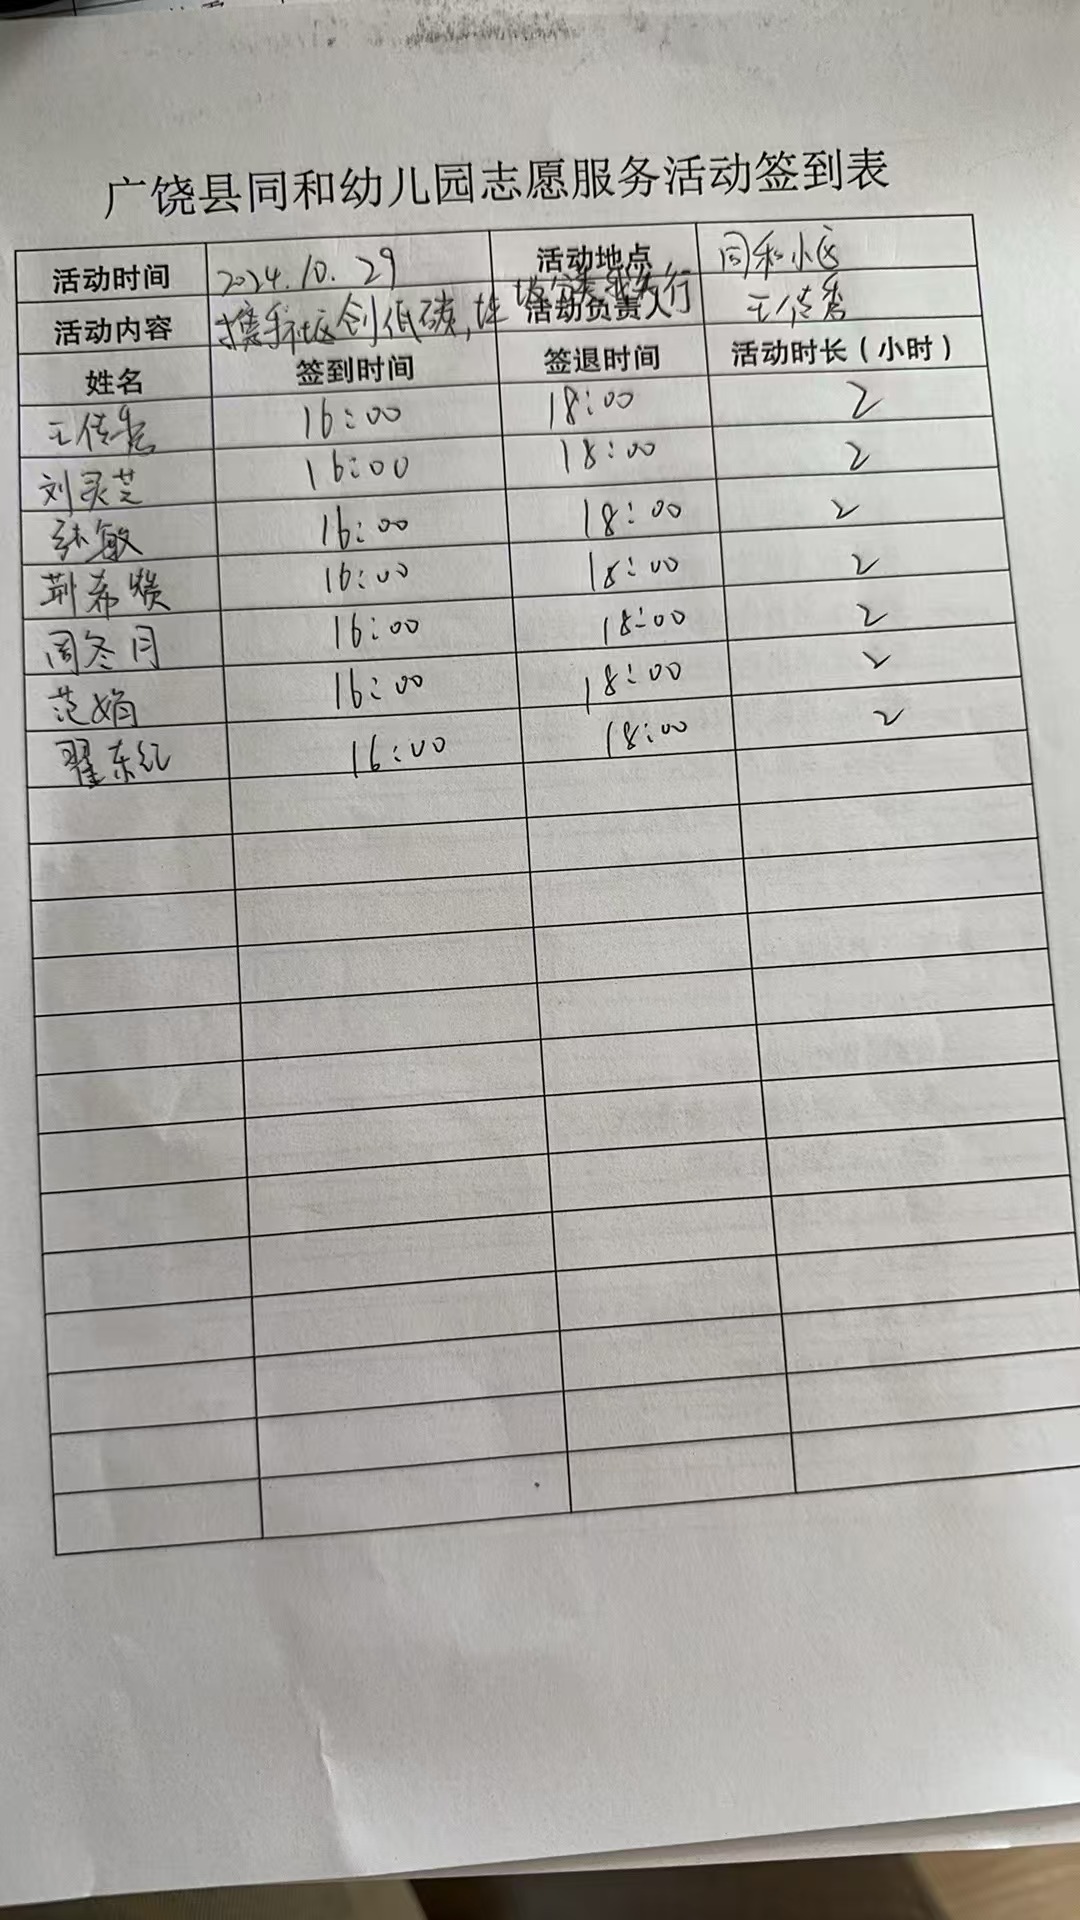 广饶县同和幼儿园志愿服务活动签到表
活动时间 2024.10.29 活动地点 同和小区
活动内容 携手社区创低碳,垃圾分类我先行 活动负责人 王传
姓名 签到时间 签退时间 活动时长（小时）
王传 16:00 18:00 2
刘灵芝 16:00 18:00 2
张敏 16:00 18:00 2
荆希 16:00 18:00 2
周冬月 16:00 18:00 2
范娟 16:00 18:00 2
翟东红 16:00 18:00 2